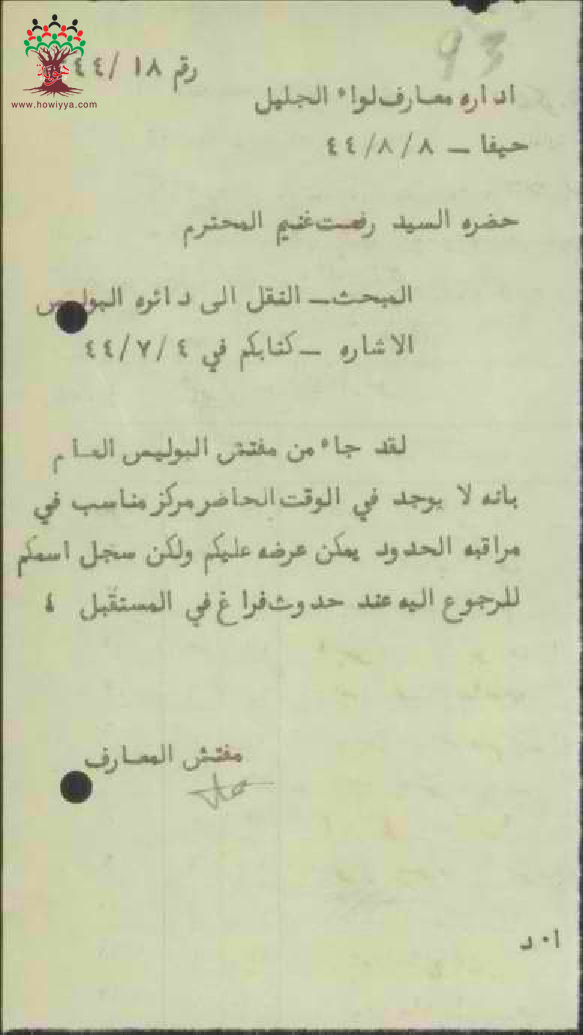 93
رقم ١٨ /٤٤
www.howiyya.com
اداره معارف لواء الجليل
حيفا — ٤٤/٨/٨
حضره السيد رفعت غنيم المحترم
المبحث — النقل الى دائره البوليس
الاشاره — كتابكم في ٤٤/٧/٤
لقد جاء من مفتش البوليس العام
بانه لا يوجد في الوقت الحاضر مركز مناسب في
مراقبه الحدود يمكن عرضه عليكم ولكن سجل اسمكم
للرجوع اليه عند حدوث فراغ في المستقبل
مفتش المعارف
ا٠د